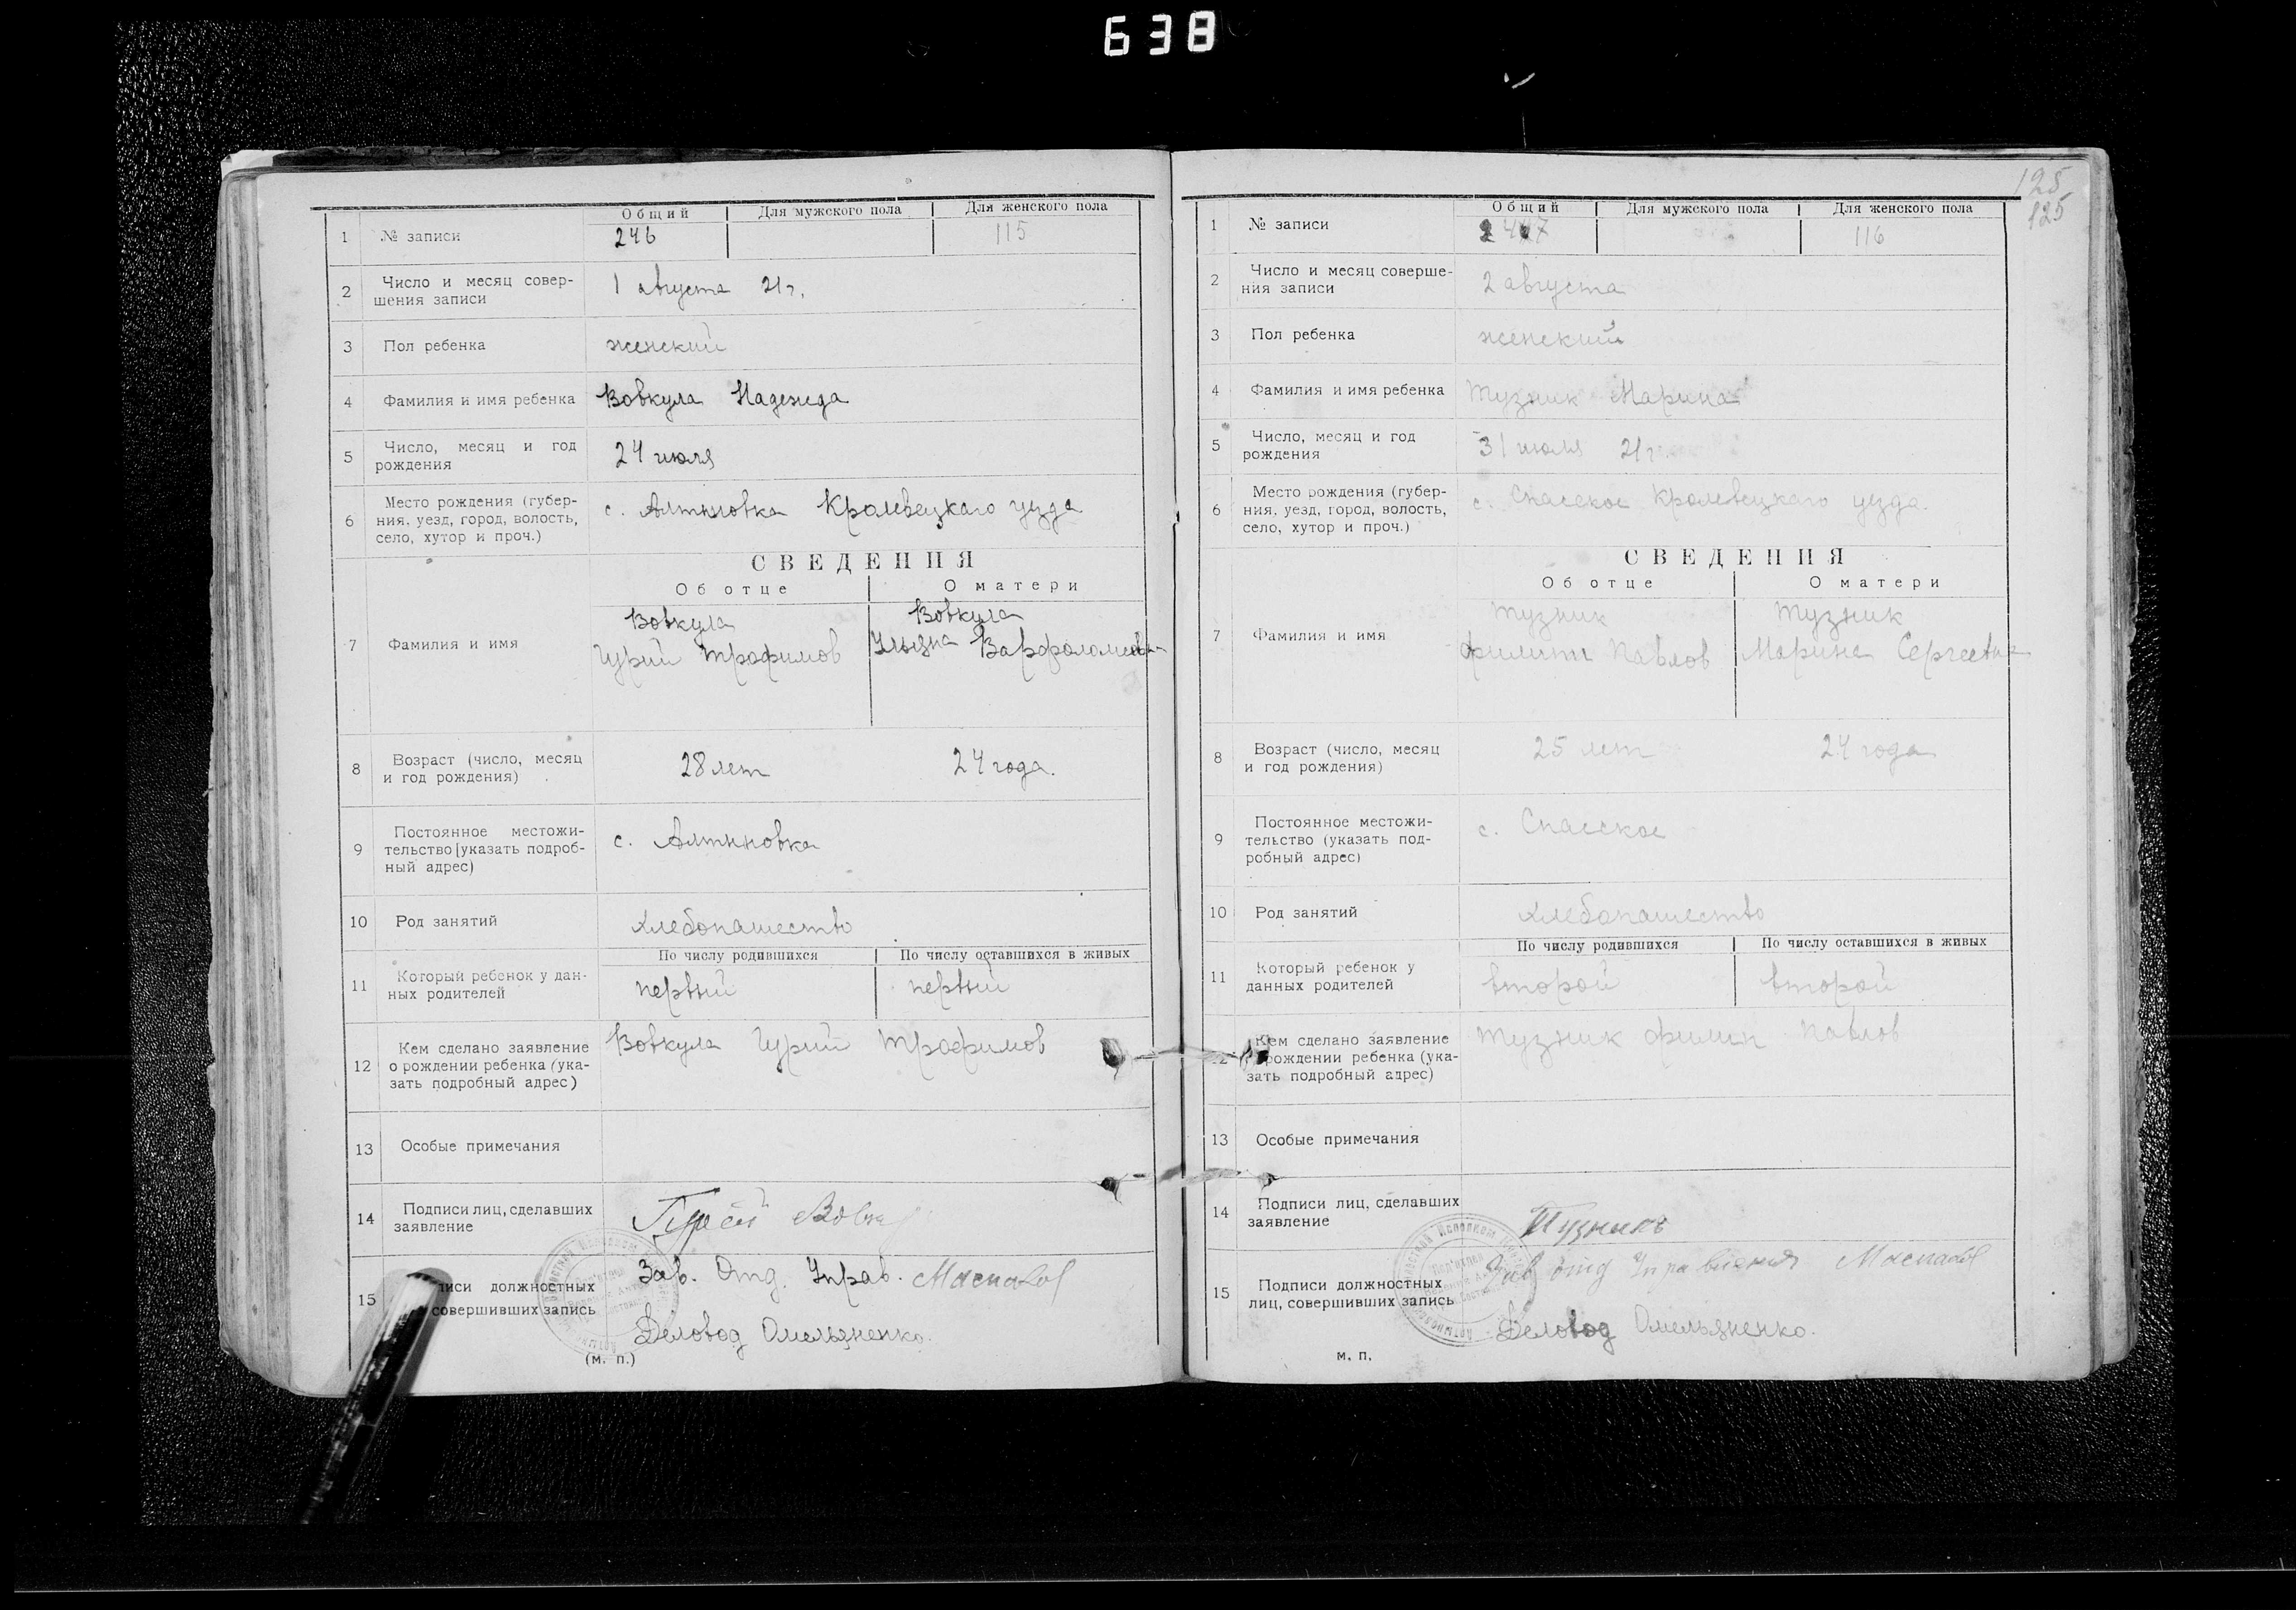 638
Общий Для мужского пола Для женского пола
1 № записи 246 115
2 Число и месяц совер-
шения записи 1 августа 21 г.
3 Пол ребенка женский
4 Фамилия и имя ребенка Вовкула Надежда
5 Число, месяц и год
рождения 24 июля
6 Место рождения (губер-
ния, уезд, город, волость,
село, хутор и проч.) с. Алтыновка Кролевецкаго уезда
СВЕДЕНИЯ
Об отце О матери
7 Фамилия и имя Вовкула Вовкула
Гурий Трофимов Варфоломеев
8 Возраст (число, месяц
и год рождения) 28 лет 24 года.
9 Постоянное местожи-
тельство [указать подроб-
ный адрес) с. Алтыновка
10 Род занятий хлебопашество
По числу родившихся По числу оставшихся в живых
11 Который ребенок у дан-
ных родителей первый первый
12 Кем сделано заявление
о рождении ребенка (ука-
зать подробный адрес) Вовкула Гурий Трофимов
13 Особые примечания
14 Подписи лиц, сделавших
заявление
15 писи должностных
совершивших запись Зав. Отд. Управ.
Деловод Омельяненко.
(м. п.)
125
125
Общий Для мужского пола Для женского пола
1 № записи 247 116
2 Число и месяц соверше-
ния записи 2 августа
3 Пол ребенка женский
4 Фамилия и имя ребенка Тузник Марина
5 Число, месяц и год
рождения 31 июля 21 г
6 Место рождения (губер-
ния, уезд, город, волость,
село, хутор и проч.) с. Спасское Кролевецкаго уезда.
СВЕДЕНИЯ
Об отце О матери
7 Фамилия и имя Тузник Тузник
Филипп Павлов Марина Сергеевна
8 Возраст (число, месяц
и год рождения) 25 лет 24 года
9 Постоянное местожи-
тельство (указать под-
робный адрес) с. Спасское
10 Род занятий хлебопашество
По числу родившихся По числу оставшихся в живых
11 Который ребенок у
данных родителей второй второй
12 Кем сделано заявление
рождении ребенка (ука-
зать подробный адрес) Тузник Филип Павлов
13 Особые примечания
14 Подписи лиц, сделавших
заявление Тузникъ
15 Подписи должностных
лиц, совершивших запись Зав отд Управления
Деловод Омельяненко.
м. п.